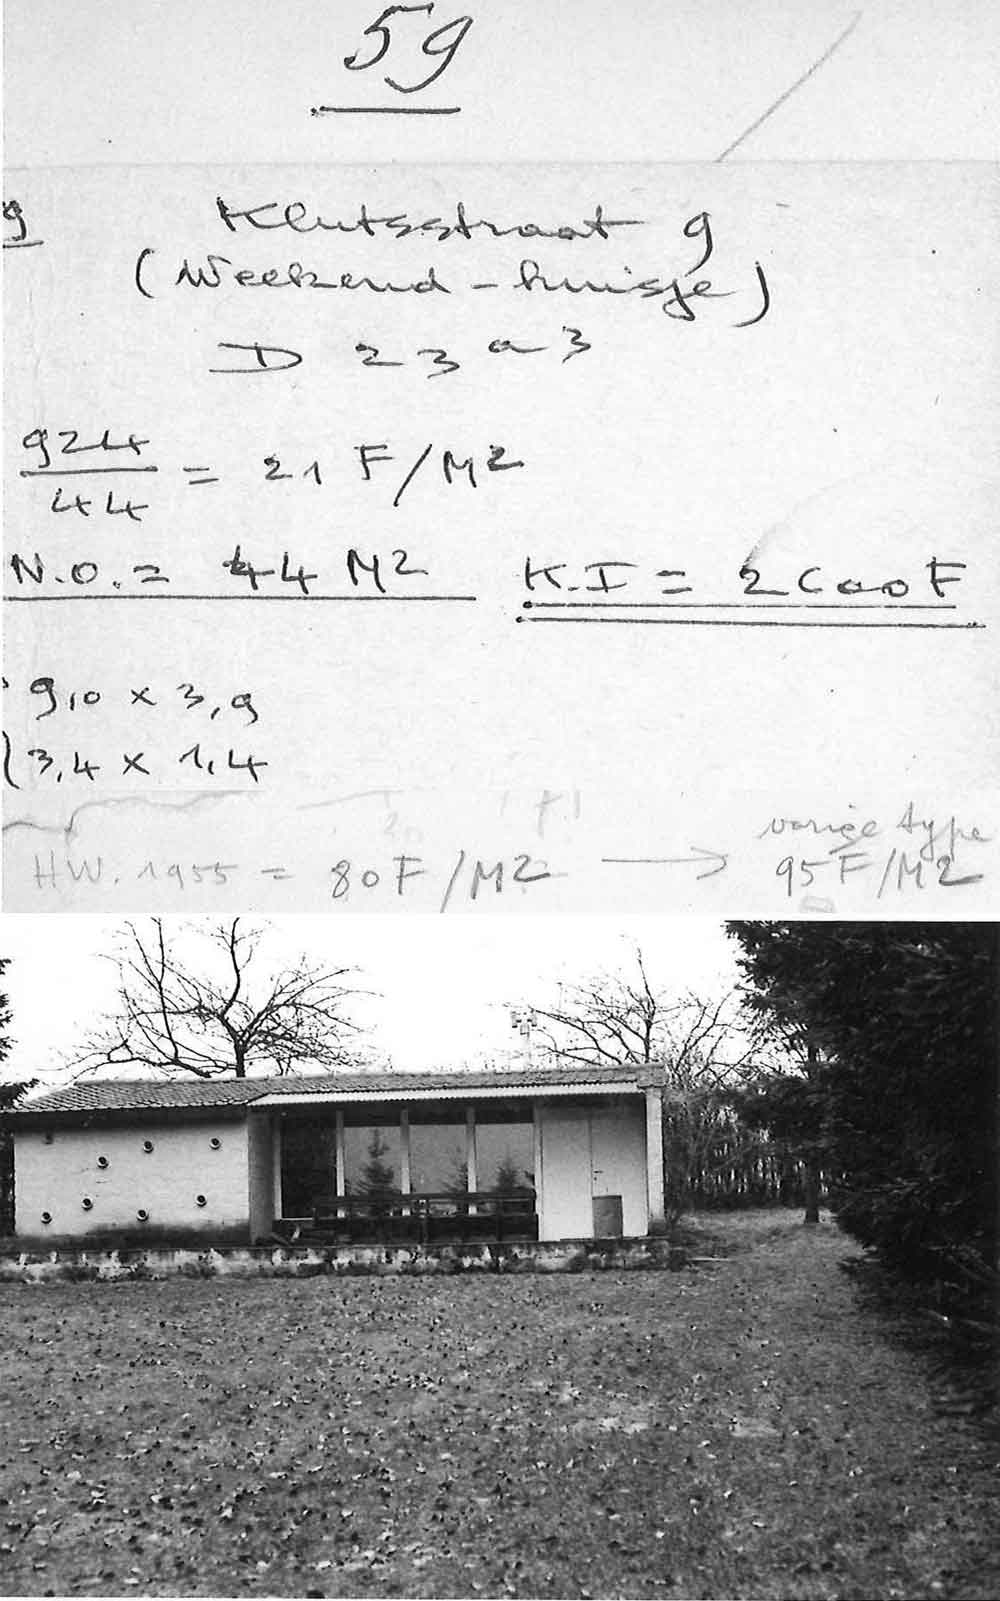 59
9
Klutsstraat 9
(Weekend-huisje)
D 23 a 3
924
44 = 21 F/M2
N.O. = 44 M2 K.I = 2000 F
9,0 x 3,9
3,4 x 1,4
HW. 1955 = 80 F/M2 → 95 F/M2
vorige type